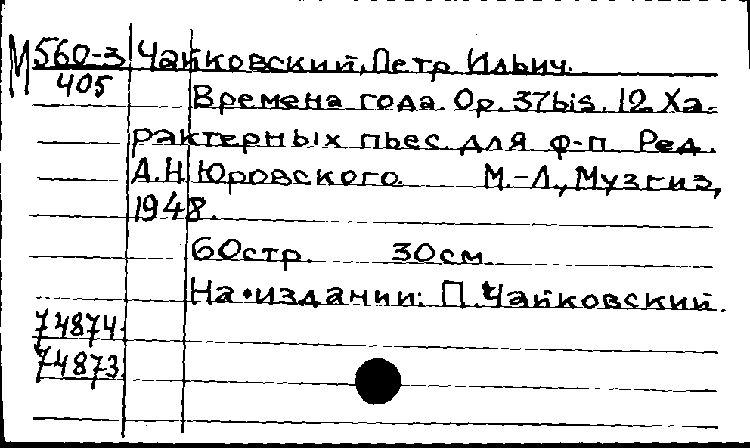 М 560-3 Чайковский, Петр Ильич.
405
Времена года. Op. 37bis. 12 Ха-
рактерных пьес для ф-п. Ред.
А.Н. Юровского. М.-Л., Музгиз,
1948.
60стр. 30см.
На издании: П. Чайковский.
74874
74873